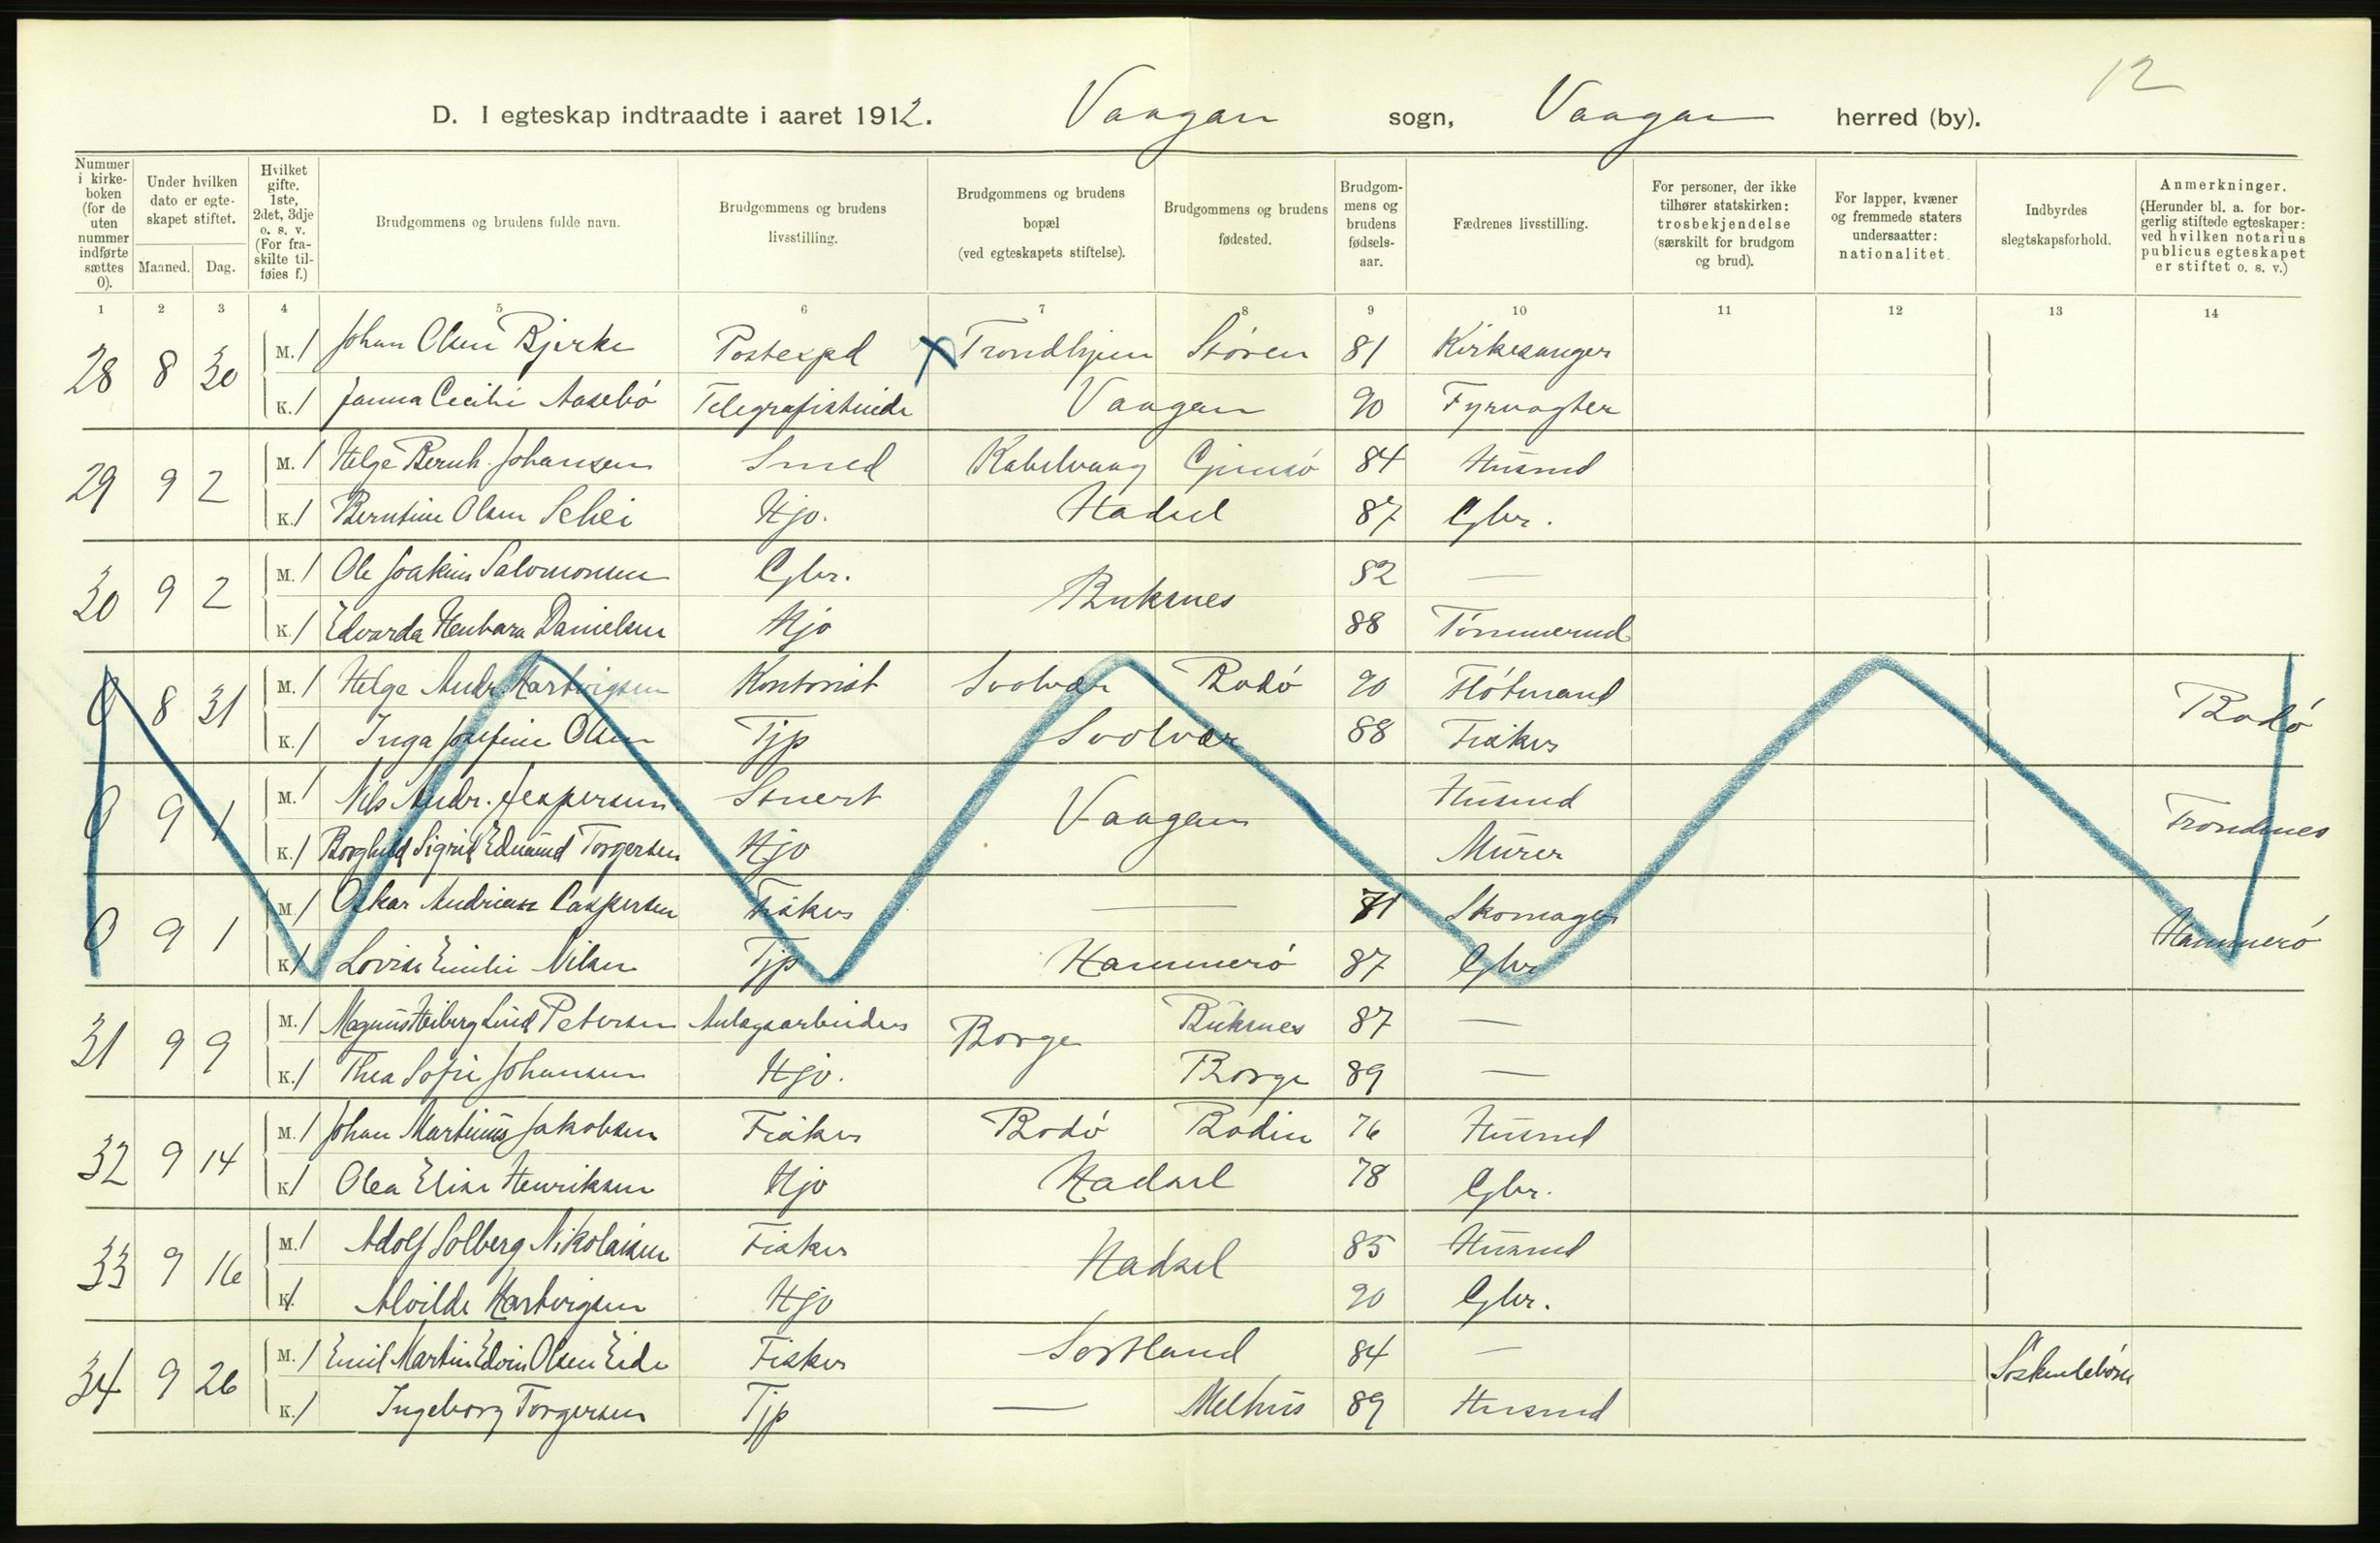 12
D. I egteskap indtraadte i aaret 1912. Vaagan sogn, Vaagan herred (by).
Nummer i kirke- boken (for de uten nummer indførte sættes 0).
Under hvilken dato er egte- skapet stiftet.
Maaned. Dag.
Hvilket gifte. 1ste, 2det, 3dje o. s. v. (For fra- skilte til- føies f.)
Brudgommens og brudens fulde navn.
Brudgommens og brudens livsstilling.
Brudgommens og brudens bopæl (ved egteskapets stiftelse).
Brudgommens og brudens fødested.
Brudgom- mens og brudens fødsels- aar.
Fædrenes livsstilling.
For personer, der ikke tilhører statskirken: trosbekjendelse (særskilt for brudgom og brud).
For lapper, kvæner og fremmede staters undersaatter: nationalitet.
Indbyrdes slegtskapsforhold.
Anmerkninger. (Herunder bl. a. for bor- gerlig stiftede egteskaper: ved hvilken notarius publicus egteskapet er stiftet o. s. v.)
1 2 3 4 5 6 7 8 9 10 11 12 13 14
28 8 30 M. 1 Johan Olsen Bjerke Postexpd X Trondhjem Støren 81 Kirkesanger
K. 1 Janna Cecilie Aasebö Telegrafistinde Vaagan 90 Fyrvogter
29 9 2 M. 1 Helge Bernh. Johansen Smed Kabelvaag Gimsö 84 Husmd
K. 1 Berntine Olsen Schei Hjo. Hadsel 87 Gbr.
30 9 2 M. 1 Ole Joakim Salomonsen Gbr. Buksnes 82 —
K. 1 Edvarda Danielsen Hjo 88 Tömmermd
0 8 31 M. 1 Helge Andr. Hartvigsen Kontorist Svolvær Bodö 90 Flötmand Bodö
K. 1 Inga Josefine Olsen Tjp Svolvær 88 Fisker
0 9 1 M. 1 Nils Andr. Jespersen Stuert Vaagan Husmd Trondenes
K. 1 Borghild Sigrid Edmund Torgersen Hjo Murer
0 9 1 M. 1 Oskar Andreas Caspersen Fisker — 71 Skomager Hammerö
K. 1 Lovise Emilie Nilsen Tjp Hammerö 87 Gbr
31 9 9 M. 1 Magnus Heiberg Lind Petersen Anlægsarbeider Borge Buksnes 87 —
K. 1 Thea Sofie Johansen Hjo. Borge 89 —
32 9 14 M. 1 Johan Martinus Jakobsen Fisker Bodö Bodin 76 Husmd
K. 1 Olea Elise Henriksen Hjo Hadsel 78 Gbr.
33 9 16 M. 1 Adolf Solberg Nikolaisen Fisker Hadsel 85 Husmd
K. 1 Alvilde Hartvigsen Hjo 90 Gbr.
34 9 26 M. 1 Emil Martin Edvin Olsen Eide Fisker Sortland 84 — Söskendebörn
K. 1 Ingeborg Torgersen Tjp — Melhus 89 Husmd